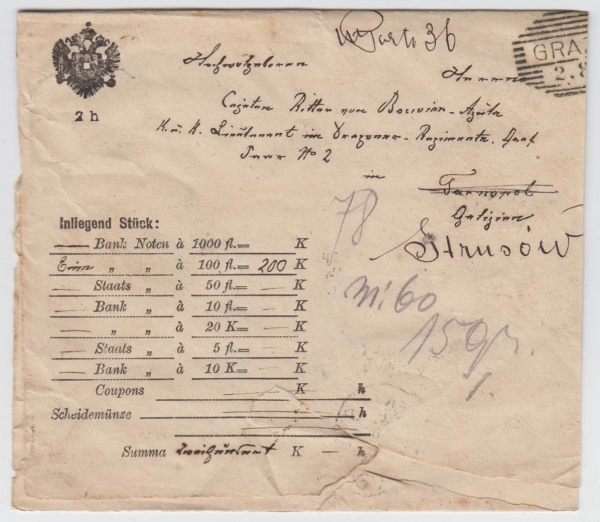 W. Porto 36
GRA
2.8
2 h
Hochwolgeboren
Herrn
Cajetan Ritter von
K. u. K. Lieutenant im Dragoner-Regimente Graf
Paar No 2
in
Tarnopol
Galizien
Strusów
Inliegend Stück:
— Bank Noten à 1000 fl.= K
Ein „ „ à 100 fl.= 200 K
— Staats „ à 50 fl.= — K
— Bank „ à 10 fl.= — K
— „ „ à 20 K= — K
— Staats „ à 5 fl.= — K
— Bank „ à 10 K= — K
Coupons — K — h
Scheidemünze h
Summa zweihundert K — h
78
N: 60
15 gr.